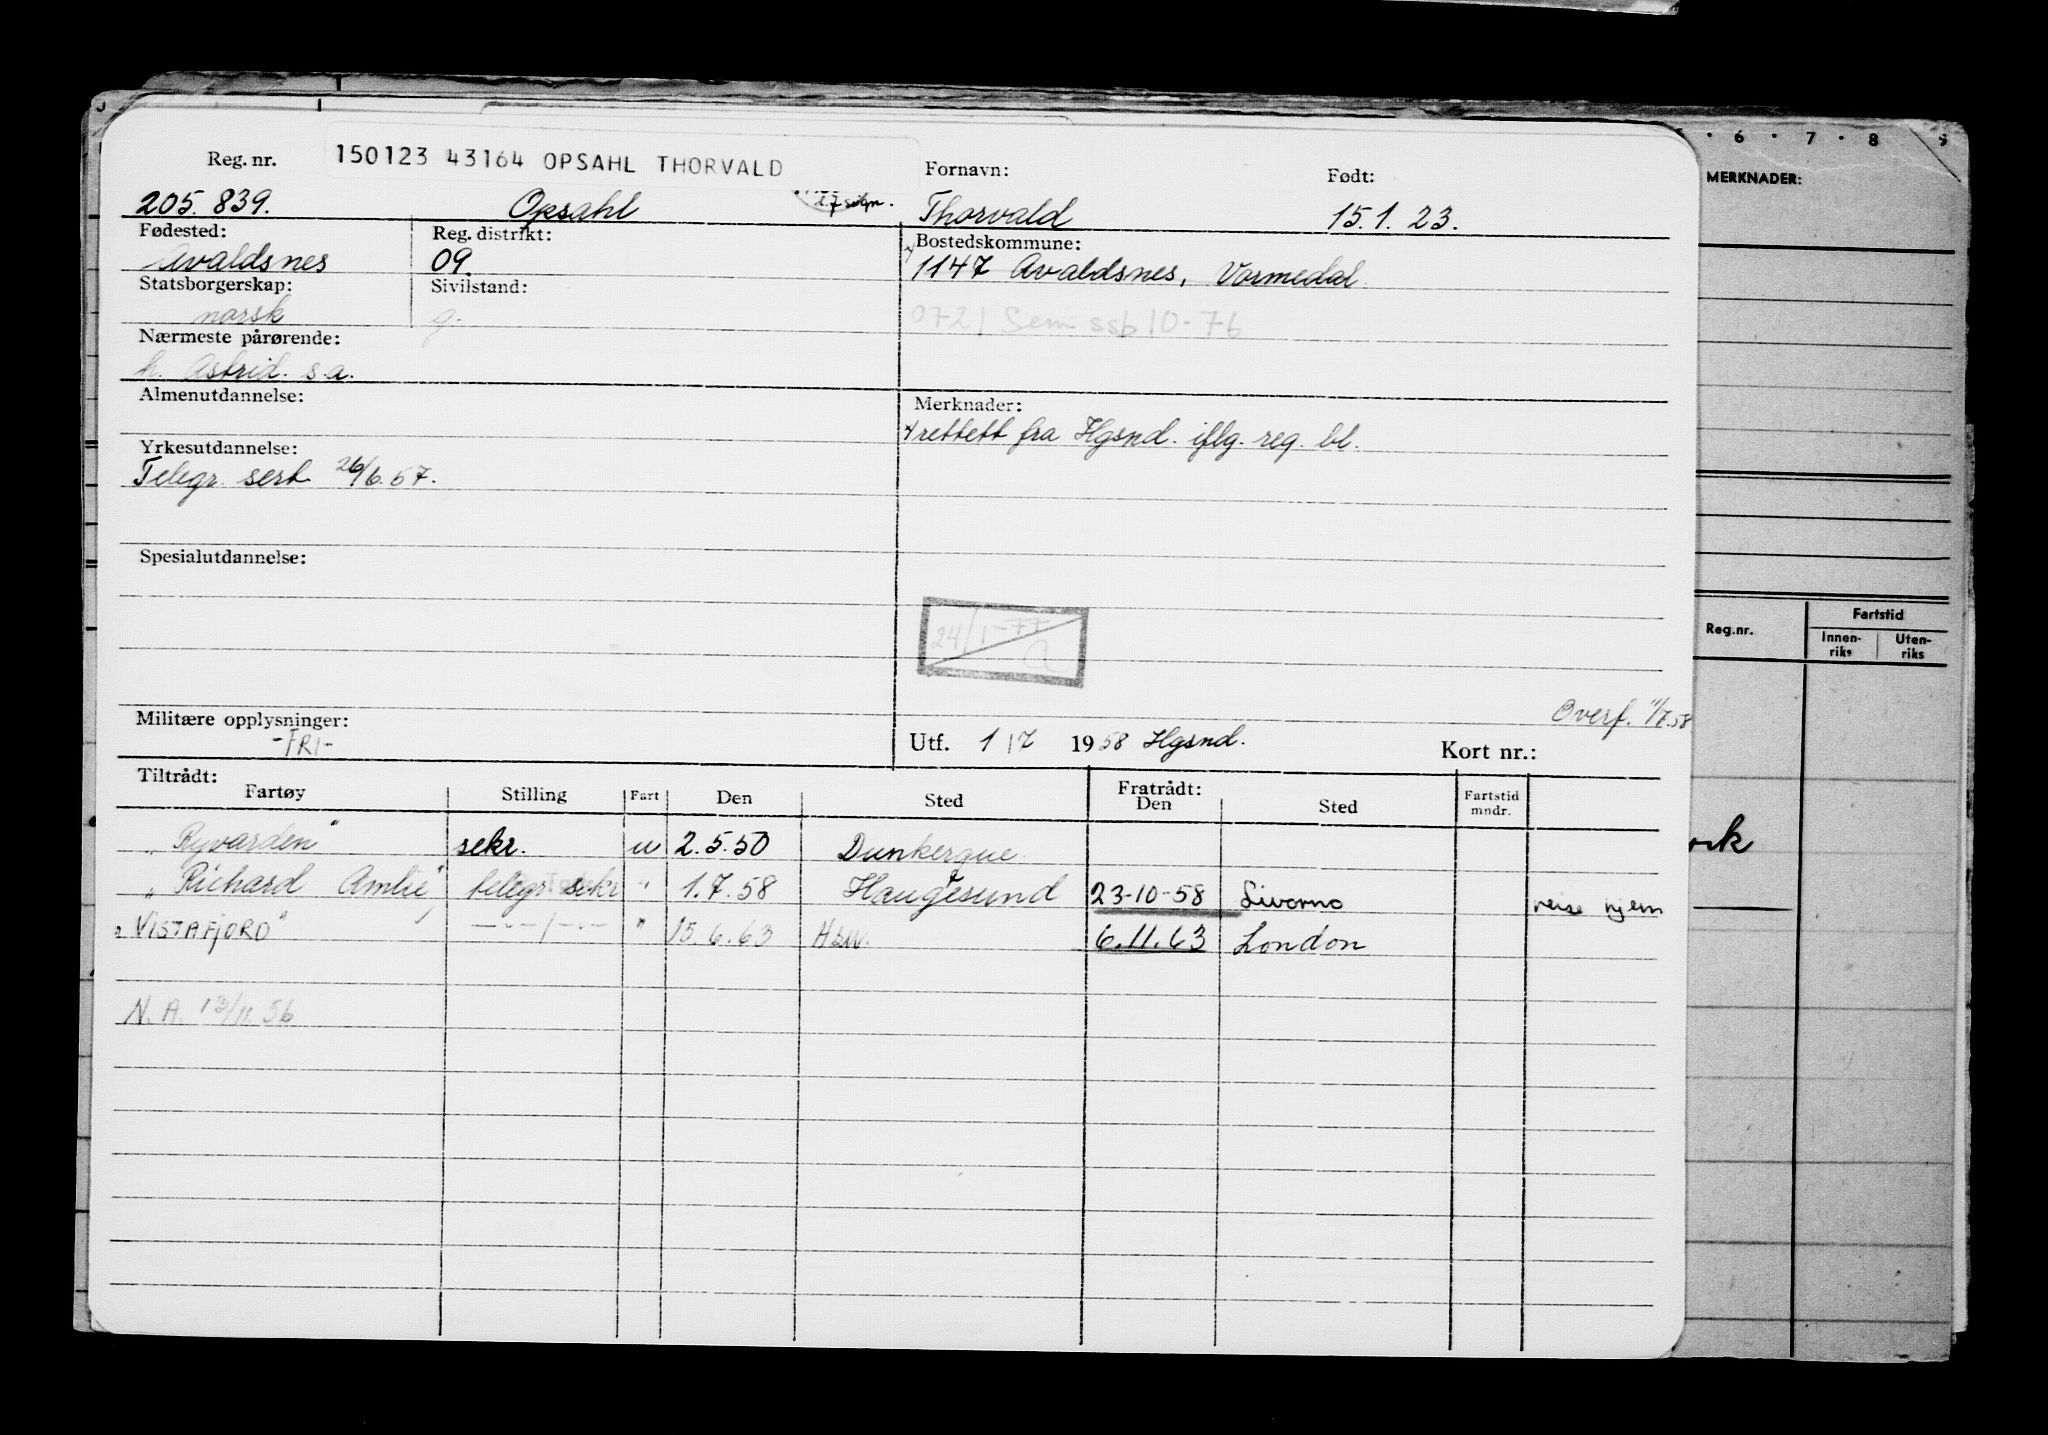 5 · 6 · 7 · 8 9
MERKNADER:
Reg. nr. 150123 43164 OPSAHL THORVALD Fornavn: Født:
205.839. Opsahl 27 sign. Thorvald 15.1.23.
Fødested: Reg. distrikt: Bostedskommune:
Avaldsnes 09. 1147 Avaldsnes, Vormedal
Statsborgerskap: Sivilstand:
norsk g. 0721 Sem ssb 10-76
Nærmeste pårørende:
h. Astrid. s.a.
Almenutdannelse: Merknader:
rettett fra Hgsnd. iflg. reg. bl.
Yrkesutdannelse:
Telegr. sert 26/6.57.
Spesialutdannelse:
24/1-77
a
Reg.nr. Fartstid
Innen-riks Uten-riks
Overf. 11/7.58
Militære opplysninger:
-FRI-
Utf. 1/7 1958 Hgsnd. Kort nr.:
Tiltrådt: Fratrådt:
Fartøy Stilling Fart Den Sted Den Sted Fartstid mndr.
"Ryvarden" sekr. u 2.5.50 Dunkerque
"Richard Amlie" telegr sekr " 1.7.58 Haugesund 23-10-58 Livorno reise hjem
"VISTAFJORD" —"—/—"— " 15.6.63 6.11.63 London
N.A. 13/11.56
ork